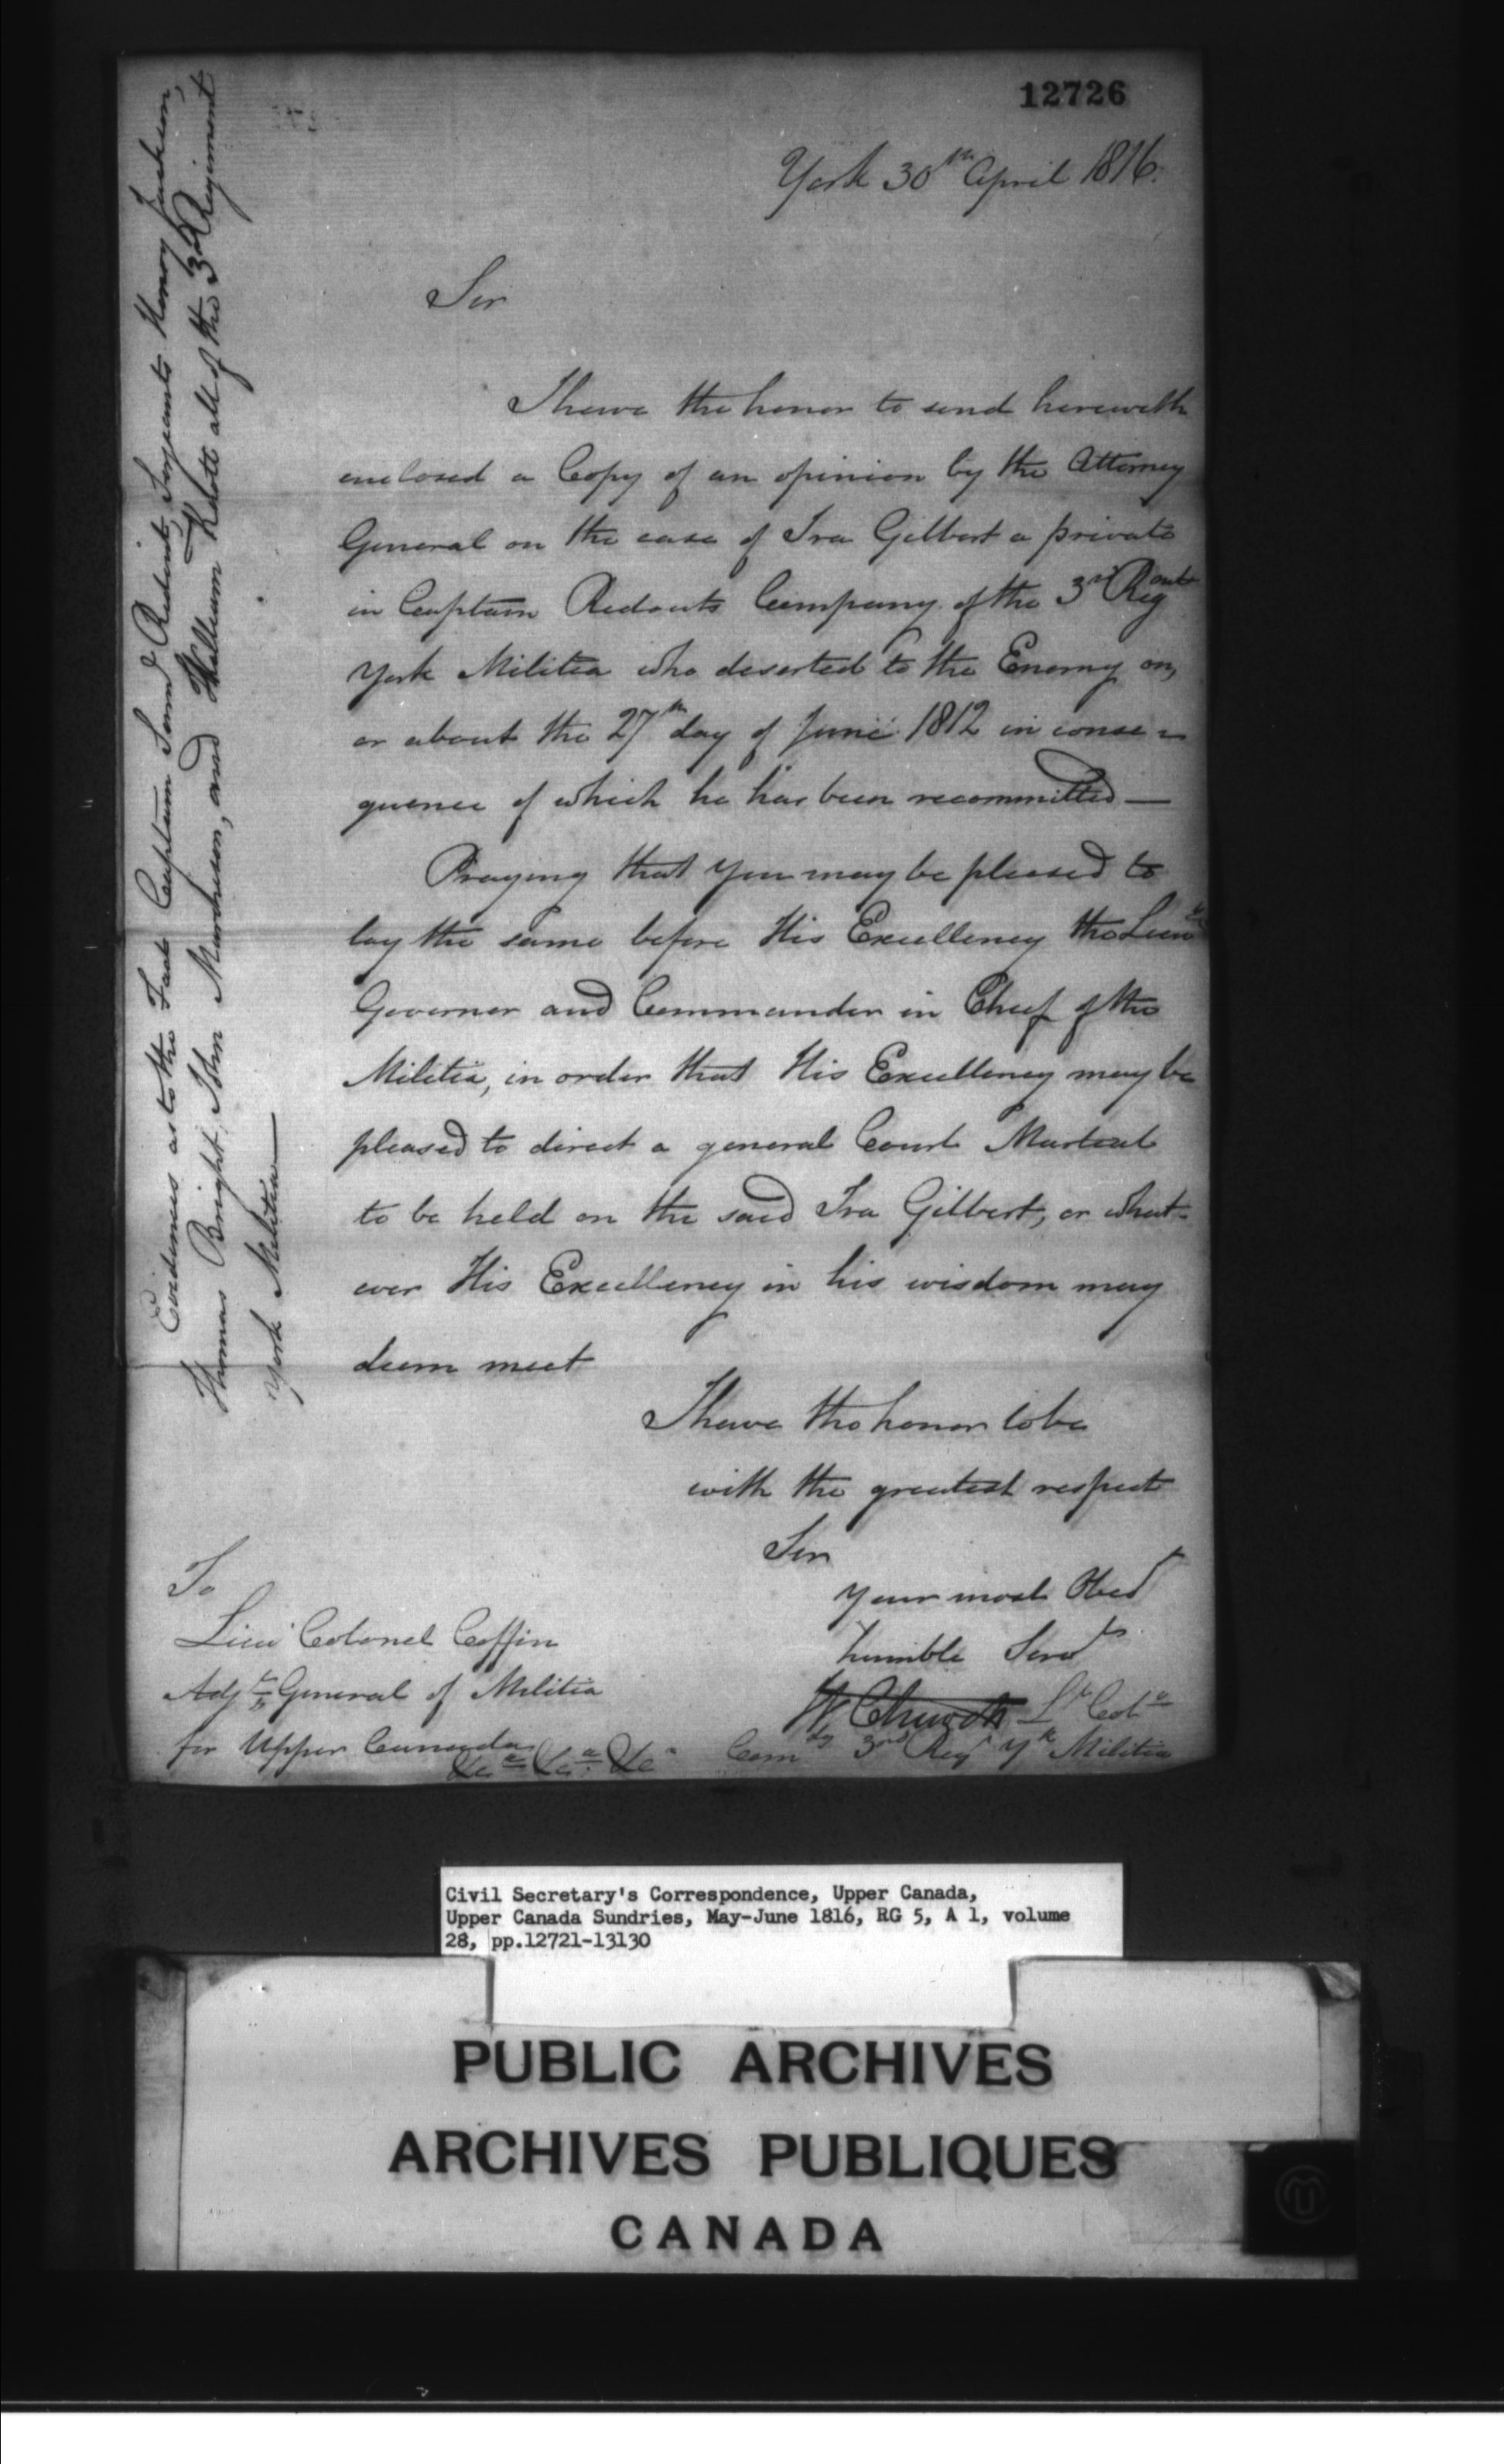 12726
York 30th April 1816.
Sir
I have the honor to send herewith
enclosed a Copy of an opinion by the Attorney
General on the case of Ira Gilbert a private
in Captain Ridouts Company of the 3rd Regt
York Militia who deserted to the Enemy on,
or about the 27th day of June 1812 in conse-
quence of which he has been recommitted—
Praying that you may be pleased to
lay the same before His Excellency the Lieut
Governor and Commander in Chief of the
Militia, in order that His Excellency may be
pleased to direct a general Court Martial
to be held on the said Ira Gilbert, or what-
ever His Excellency in his wisdom may
deem meet
I have the honor to be
with the greatest respect
Sir
your most Obed
humble Servt
W Chewett Lt Colo
Comdg 3rd Reg Yk Militia
To
Lieu Colonel Coffin
Adjt General of Militia
for Upper Canada
&ca &ca &c
Evidences as to the Fact Captain Saml Ridout, Serjeants Henry Jackson,
Thomas Bright, John Murcheson, and William Knott all of the 3rd Regiment
York Militia—
Civil Secretary's Correspondence, Upper Canada,
Upper Canada Sundries, May-June 1816, RG 5, A 1, volume
28, pp.12721-13130
PUBLIC ARCHIVES
ARCHIVES PUBLIQUES
CANADA